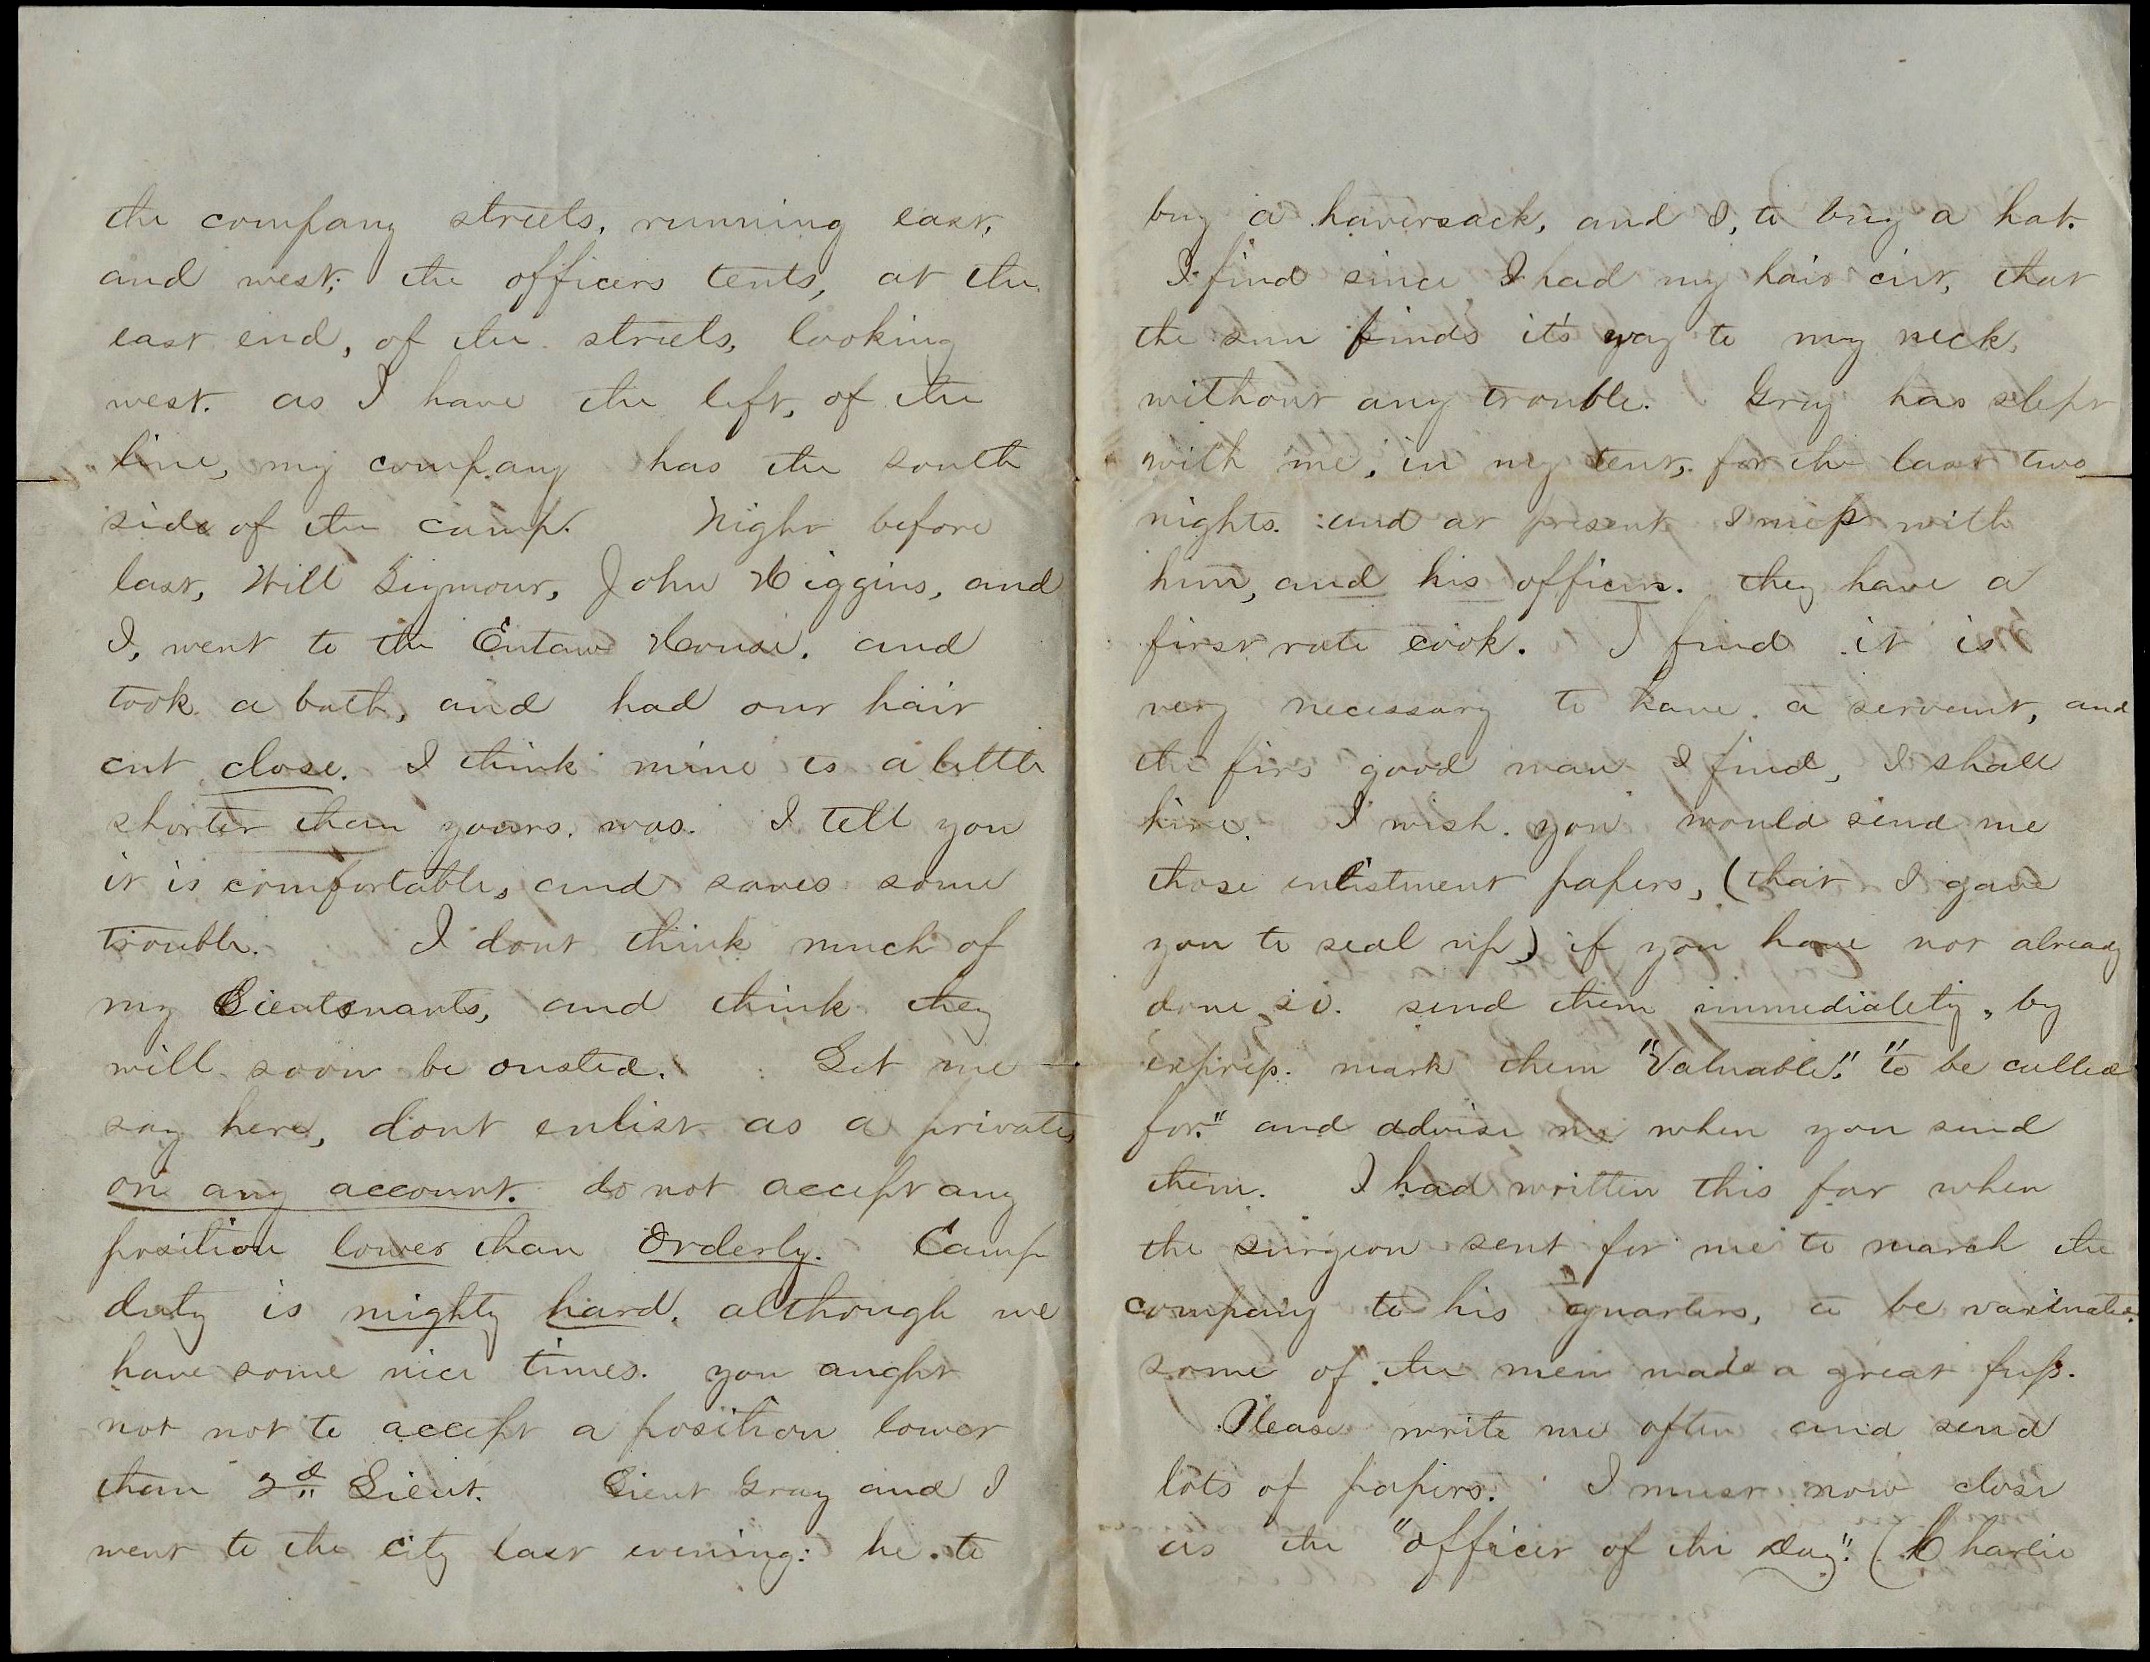 the company streets, running east,
and west; the officers tents, at the
east end, of the streets, looking
west. as I have the left, of the
line, my company has the south
side of the camp. Night before
last, Will Seymour, John Higgins, and
I, went to the Eutaw House. and
took a bath, and had our hair
cut close. I think mine is a little
shorter than yours. was. I tell you
it is comfortable, and saves some
trouble. I dont think much of
my Lieutenants, and think they
will soon be ousted. Let me
say here, dont enlist as a private
on any account. do not accept any
position lower than Orderly. Camp
duty is mighty hard, although we
have some nice times. you aught
not not to accept a position lower
than 2d Lieut. Lieut Gray and I
went to the city last evening: he. to
buy a haversack, and I, to buy a hat.
I find since I had my hair cut, that
the sun finds it's way to my neck,
without any trouble. Gray has slept
with me, in my tent, for the last two
nights. and at present I mess with
him, and his officers. they have a
first rate cook. I find it is
very necessary to have a servant, and
the firs good man I find, I shall
hire. I wish you would send me
those enlistment papers, (that I gave
you to seal up,) if you have not already
done so. send them immediately, by
express. mark them "Valuable." "to be called
for." and advise me when you send
them. I had written this far when
the surgeon sent for me to march the
company to his quarters, to be vaxinated.
some of the men made a great fuss.
Please write me often and send
lots of papers. I must now close
as the "officer of the day". (Charlie